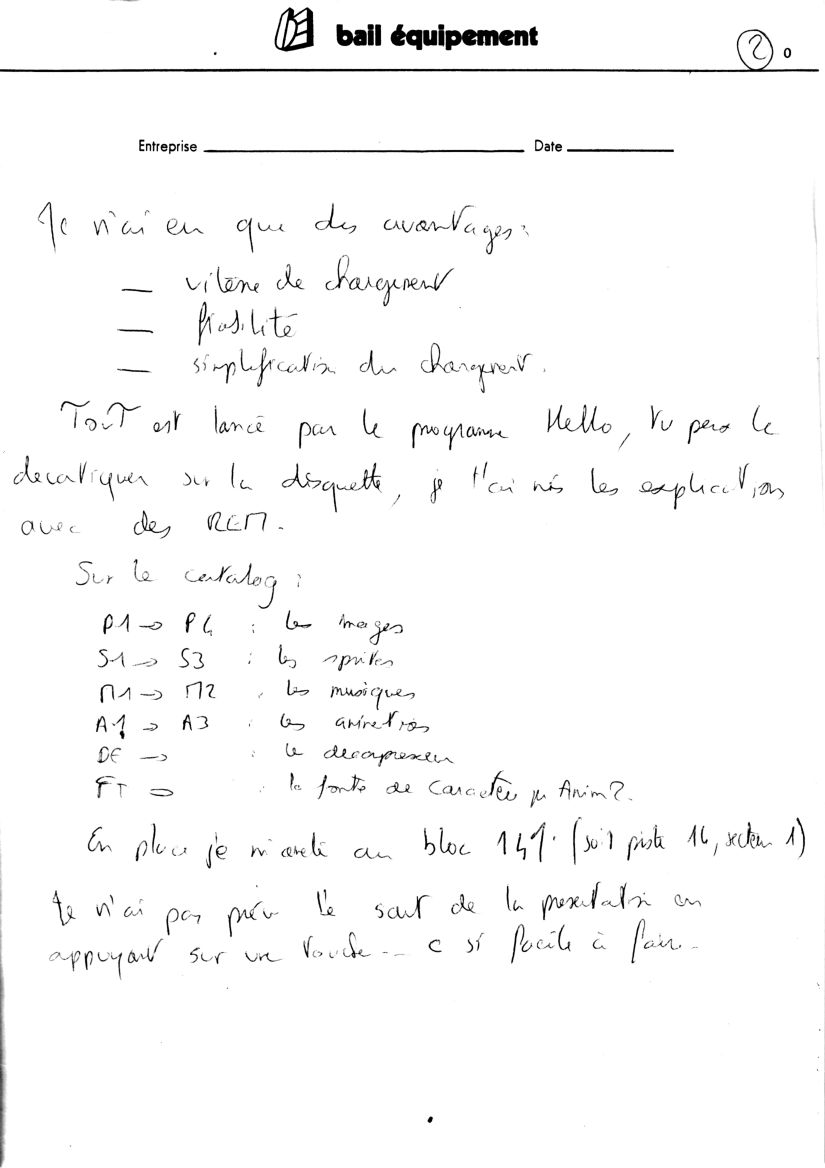 bail équipement
2 0
Entreprise Date
Je n'ai eu que des avantages :
— vitesse de chargement
— fiabilité
— simplification du chargement.
Tout est lancé par le programme Hello, tu peux le
decortiquer sur la disquette, je t'ai mis les explications
avec des REM.
Sur le catalog :
P1 → P4 : les images
S1 → S3 : les sprites
M1 → M2 : les musiques
A1 → A3 : les animations
DE → : le decompresseur
FT → : la fonte de caractères Anim 2.
En place je m'arrete au bloc (soit piste 16, secteur 1)
Je n'ai pas prévu le saut de la presentation en
appuyant sur une touche... c si facile à faire.